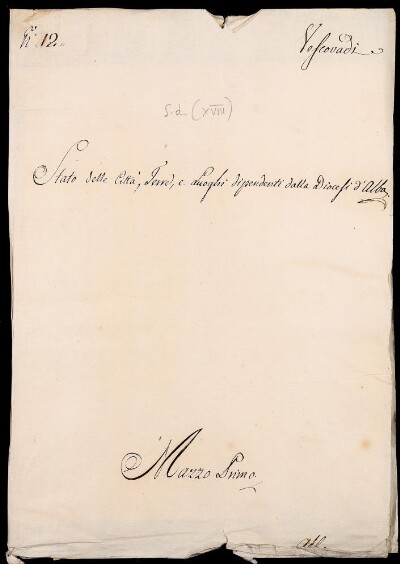 N.º 12.
Vescovadi
s.d. (XVIII)
Stato delle Città, Terre, e Luoghi dipendenti dalla Diocesi d'Alba
Mazzo Primo